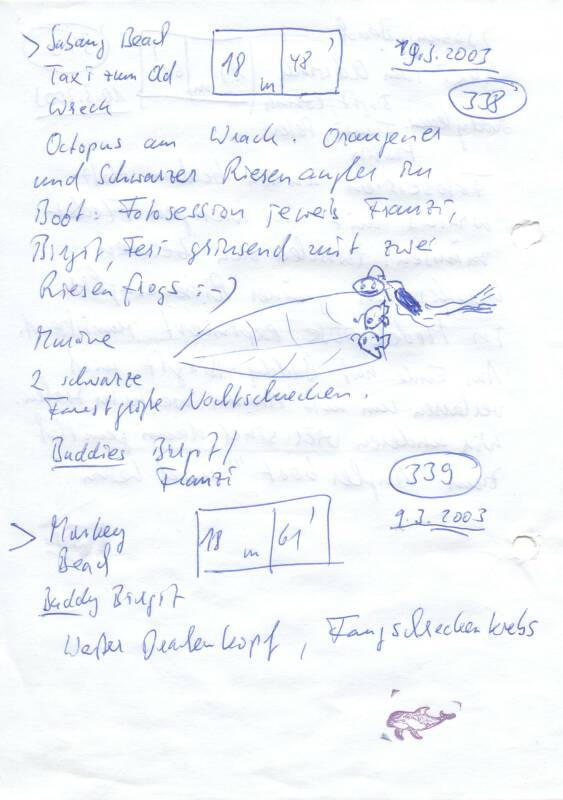 > Sabang Beach
18 m 48'
19.3.2003
Taxi zum Old
338
Wreck
Octopus am Wrack. Orangener
und Schwarzer Riesenangler im
Boot: Fotosession jeweils Franzi,
Birgit, Fesi grinsend mit zwei
Riesenfrogs :-)
Muräne
2 schwarze
Faustgroße Nachtschnecken.
Buddies Birgit/
Franzi
339
> Munkey
18 m 61'
9.3.2003
Beach
Buddy Birgit
Weißer Drachenkopf, Fangschreckenkrebs